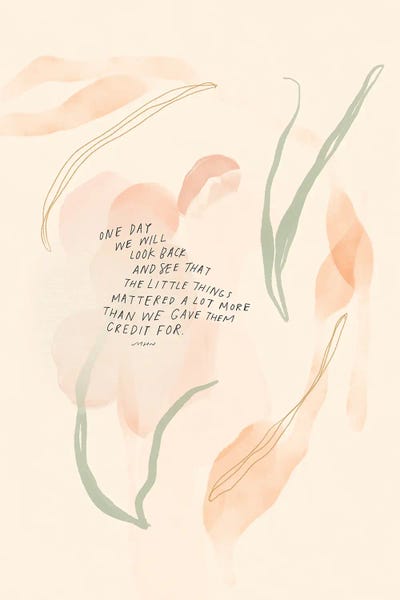 ONE DAY
WE WILL
LOOK BACK
AND SEE THAT
THE LITTLE THINGS
MATTERED A LOT MORE
THAN WE GAVE THEM
CREDIT FOR.
MHN